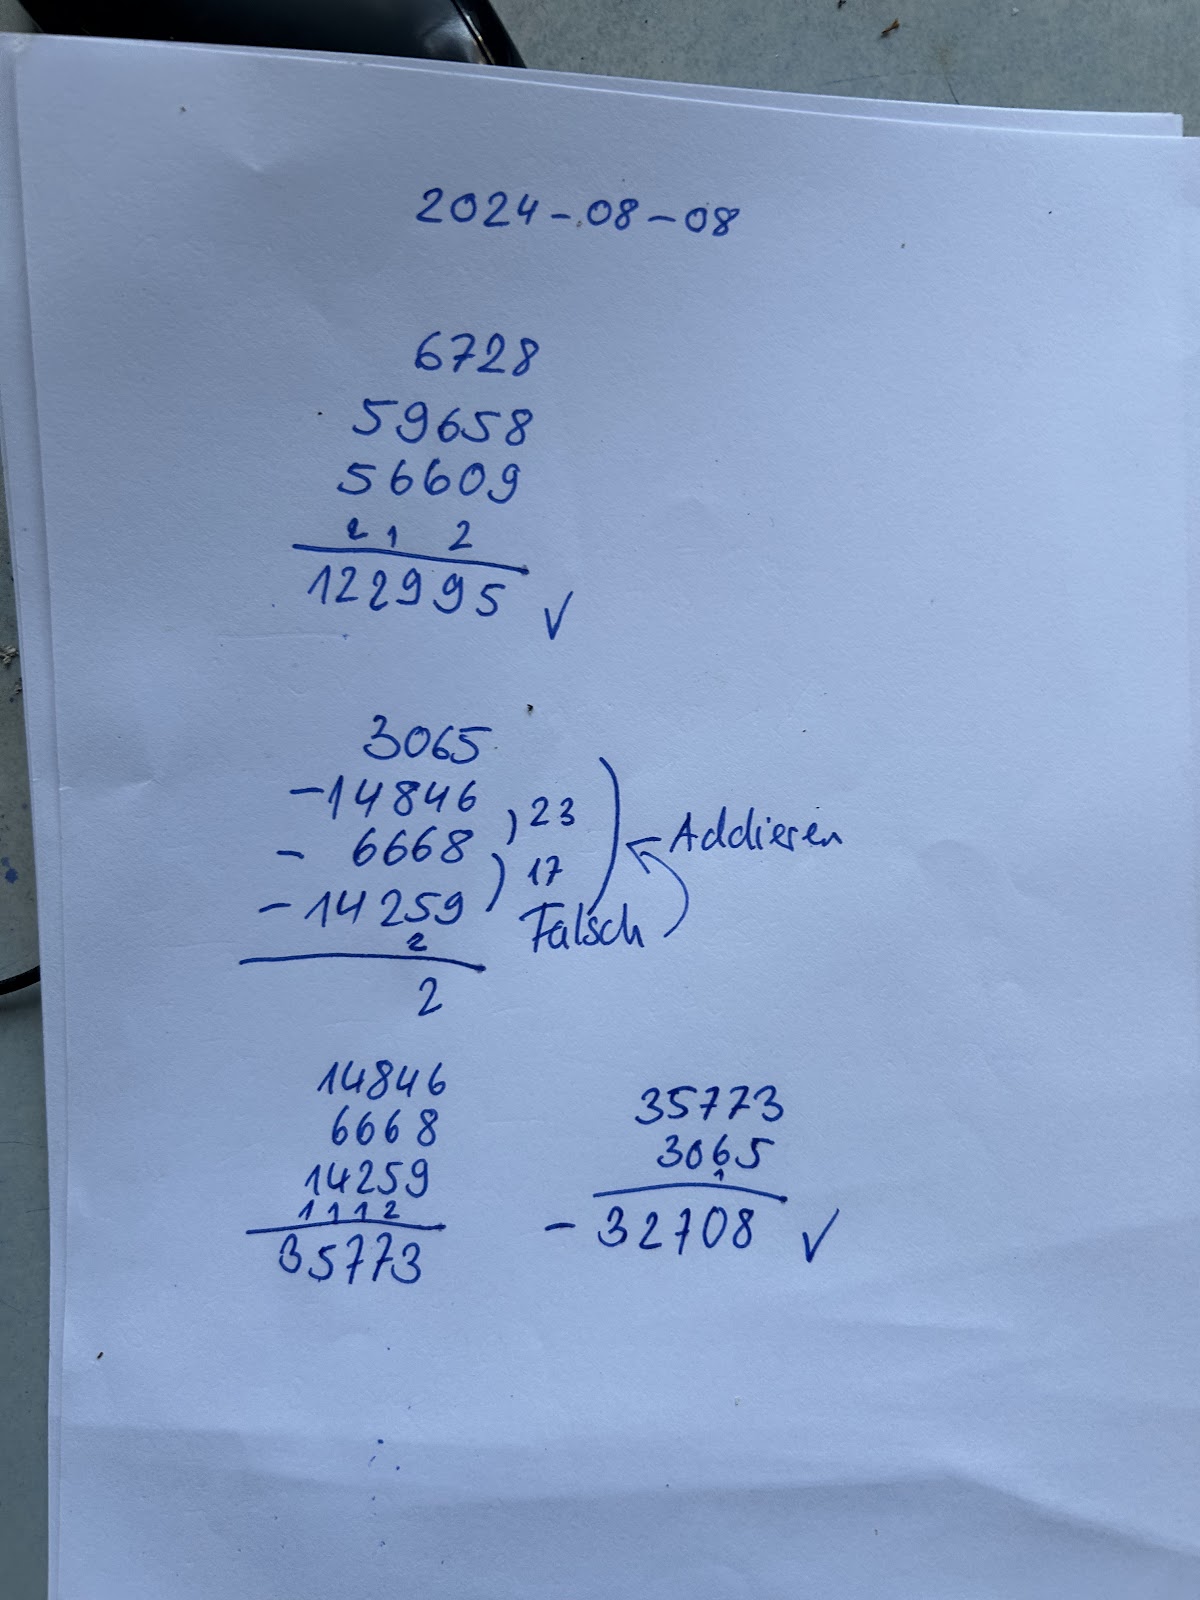 2024-08-08
6728
59658
56609
2 1 2
122995 ✓
3065
-14846
, 23
- 6668
) 17
-14259
2
2
Addieren
Falsch
14846
6668
14259
1 1 1 2
35773
35773
3065
1
- 32708 ✓